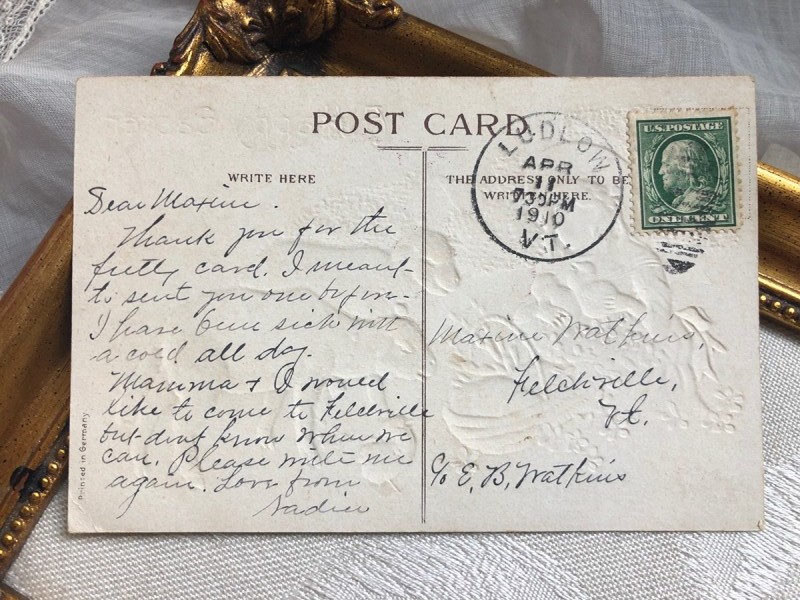 POST CARD
WRITE HERE
THE ADDRESS ONLY TO BE
WRITTEN HERE.
LUDLOW
APR
11
730PM
1910
VT.
U.S. POSTAGE
ONE CENT
Dear Maxine.
Thank you for the
pretty card. I meant
to sent you one before
I have been sick with
a cold all day.
Mamma + I would
like to come to Felchville
but dont know when we
can. Please write me
again. Love from
Nadine
Maxine Watkins,
Felchville,
Vt.
c/o E. B. Watkins
Printed in Germany